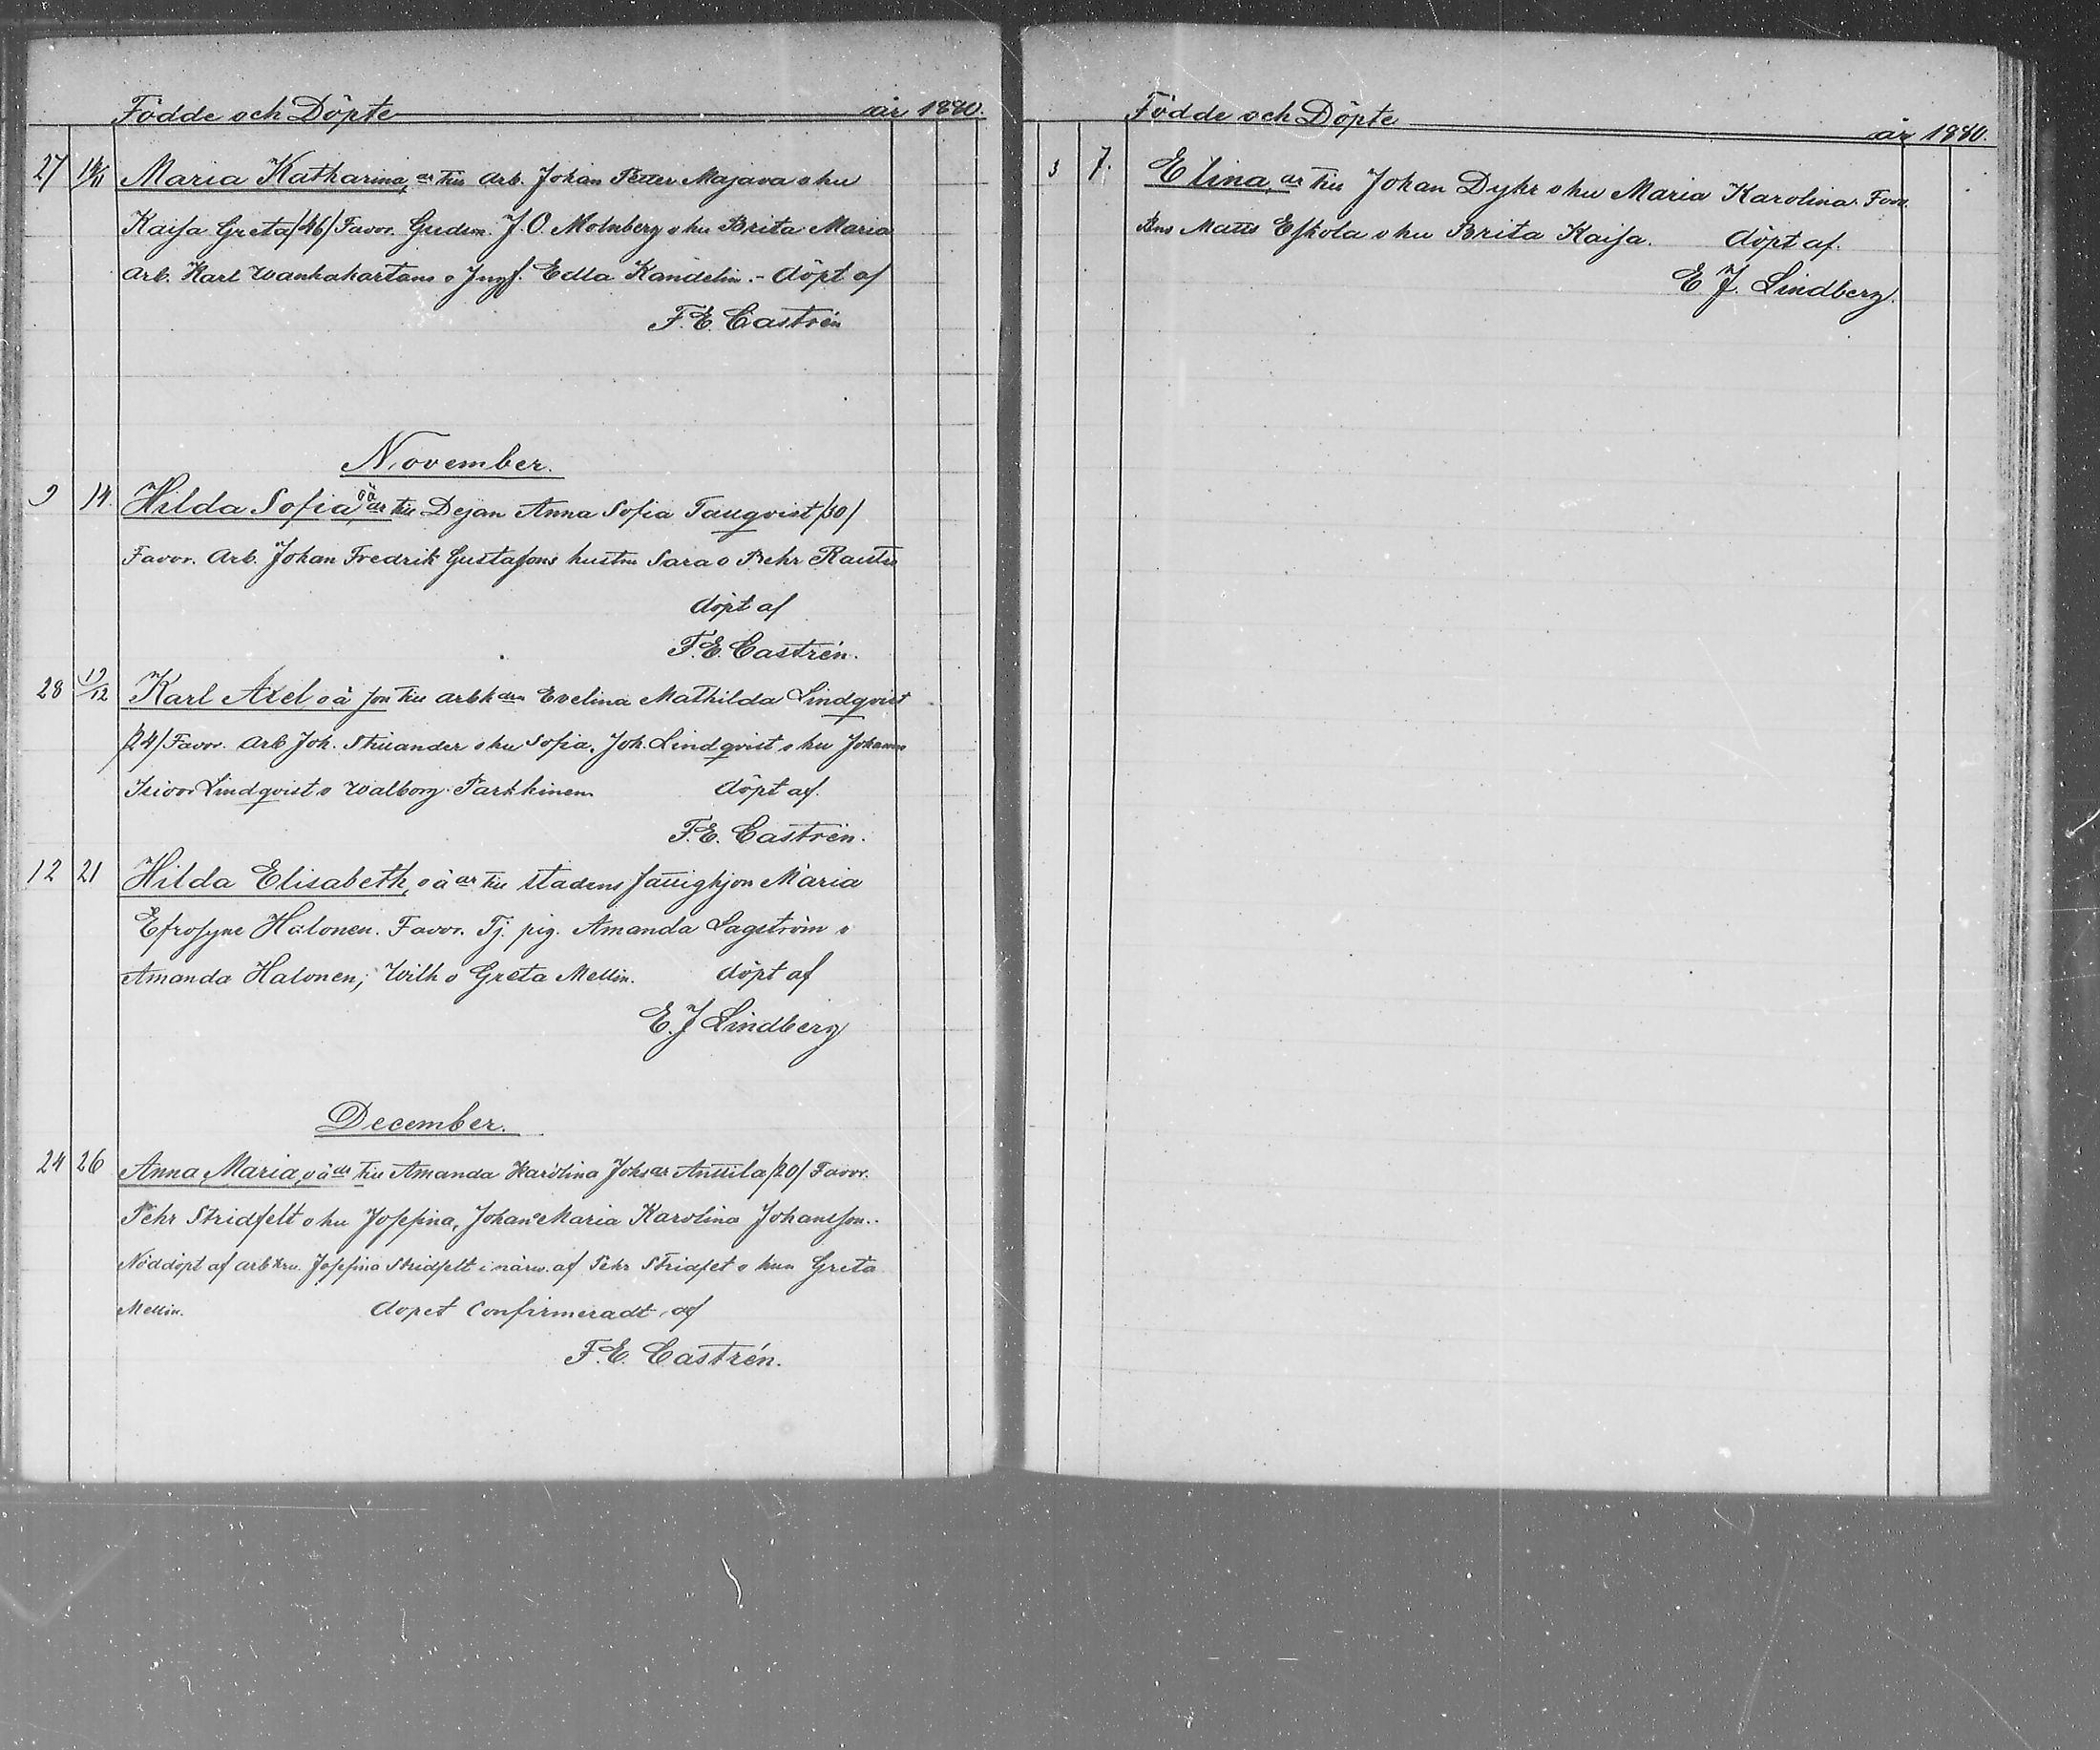 Födde och Döpte år 1880.
27 14/11 Maria Katharina, ar till Arb. Johan Petter Majava o hu
Kaisa Greta /46/ Favor. Gudsm. J. O. Molnberg o hu Brita Maria
Arb. Karl Wankahartans o Jngf. Edla Kandelin. - döpt af
F. E. Castrén
November.
9 14. Hilda Sofia oä ar till Dejan Anna Sofia Tauqvist /30/
Favor. Arb. Johan Fredrik Gustafsons hustru Sara o Pehr Rautio
döpt af
F. E. Castrén.
28 19/12 Karl Axel oä son till arbk arn Evelina Mathilda Lindqvist
/24/ Favor. Arb Joh. o hu Sofia, Joh. Lindqvist o hu Johanna
Lindqvist o Walborg Parkkinen döpt af.
F. E. Castrén.
12 21 Hilda Elisabeth, oä ar till stadens fattighjon Maria
Efrosyne Halonen. Favor. Tj. pig. Amanda Lagström o
Amanda Halonen; Wilh o Greta Mellin. döpt af
E. J Lindberg
December.
24 26 Anna Maria, oä ar till Amanda Karolina Johs ar Anttila /20/ Favor.
Pehr Stridfelt o hu Josefina, Johan o Maria Karolina Johansson.
Nöddöpt af arbhru. Josefina Stridfelt i närv. af Pehr Stridfet o hun Greta
Mellin. dopet Confirmeradt af
F. E. Castrén.
Födde och Döpte år 1880.
3 7. Elina, ar till Johan Dyhr o hu Maria Karolina. Favr.
Bns Matts Eskola o hu Brita Kaisa. döpt af.
E J. Lindberg.